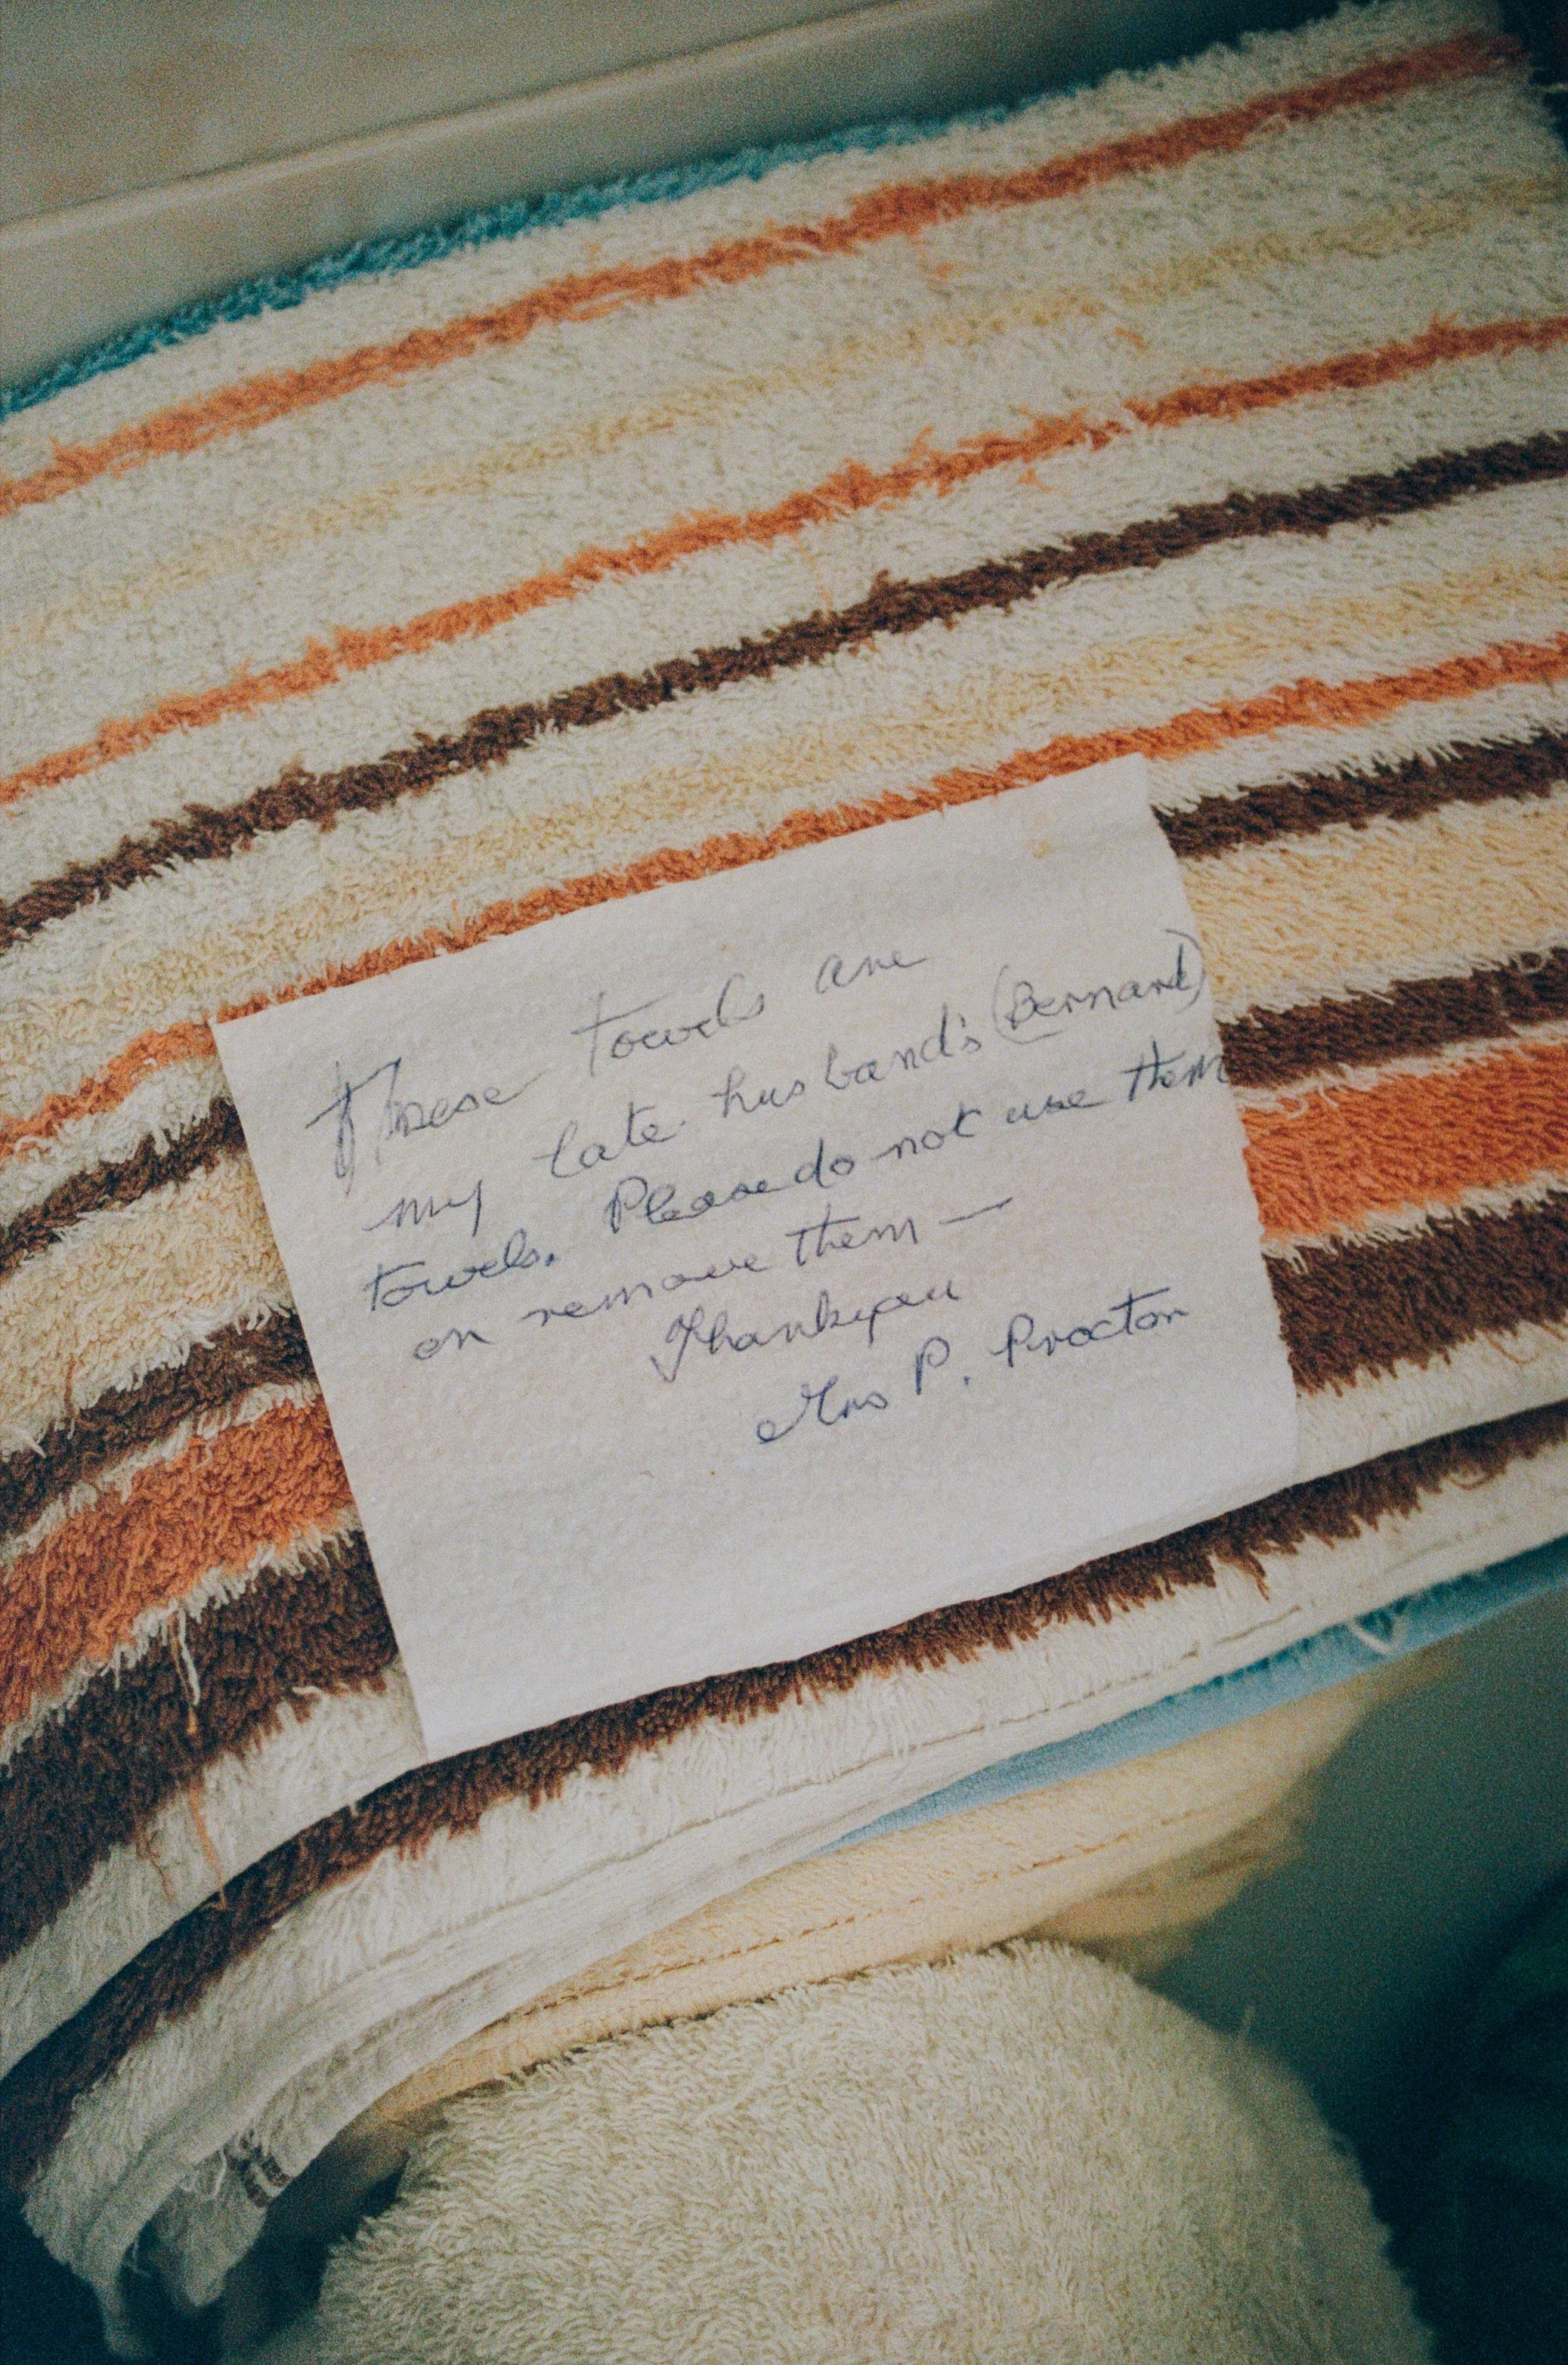 These towels are
my late husband's (Bernard)
towels. Please do not use them
or remove them —
Thankyou
Mrs P. Procter